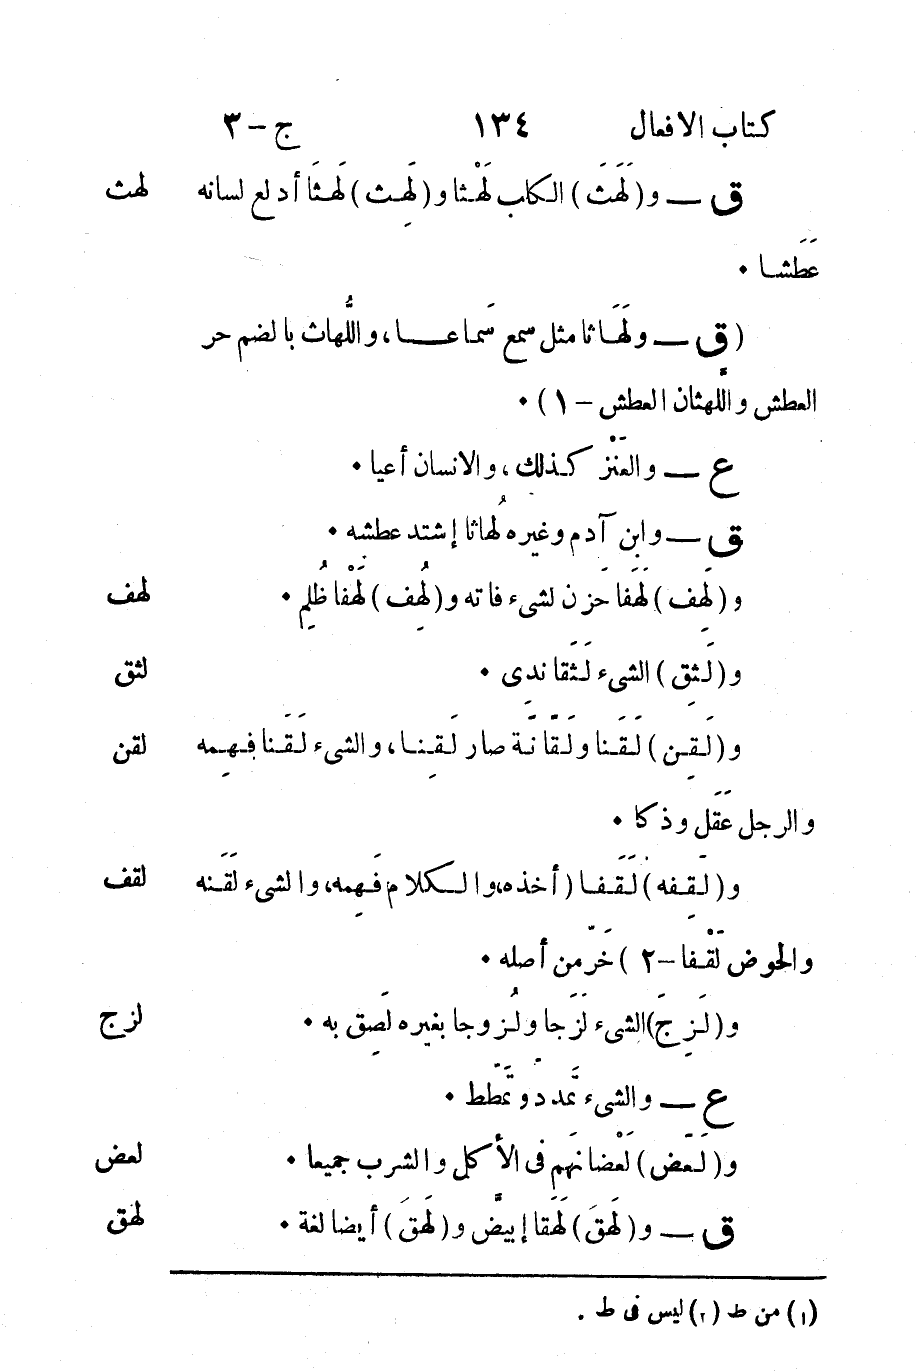 كتاب الافعال ١٣٤ ج – ٣
ق — و (لَهَثَ) الكلب لَهْثا و (لَهِث) لَهَثا أدلع لسانه لهث
عَطَشا •
(ق — ولَهَاثا مثل سمع سَماعا، واللُّهاث بالضم حر
العطش واللَّهثان العطش – ١) •
ع — والعَنْز كذلك، والانسان أعيا •
ق — وابن آدم وغيره لُهاثا إشتد عطشه •
و (لَهِف) لَهَفا حَزِن لشىء فاته و (لُهِف) لَهْفا ظُلِم • لهف
و (لَثِق) الشىء لَثَقا نَدِى • لثق
و (لَقِن) لَقَنا ولَقَانَّة صار لَقِنا، والشىء لَقَنا فهِمه لقن
والرجل عَقَل وذكا •
و (لَقِفه) لَقَفا (أخذه، والكلام فَهِمه، والشىء لَقَنه لقف
والحوض لَقْفا – ٢) خَرَّ من أصله •
و (لَزِجَ) الشىء لَزَجا ولُزوجا بغيره لَصِق به • لزج
ع — والشىء تَمدد وتَمَطّط •
و (لَعَض) لَعْضا نَهَم فى الأكل والشرب جميعا • لعض
ق — و (لَهَقَ) لَهَقا إبيضَّ و (لَهَقَ) أيضا لغة • لهق
(١) من ط (٢) ليس فى ط .